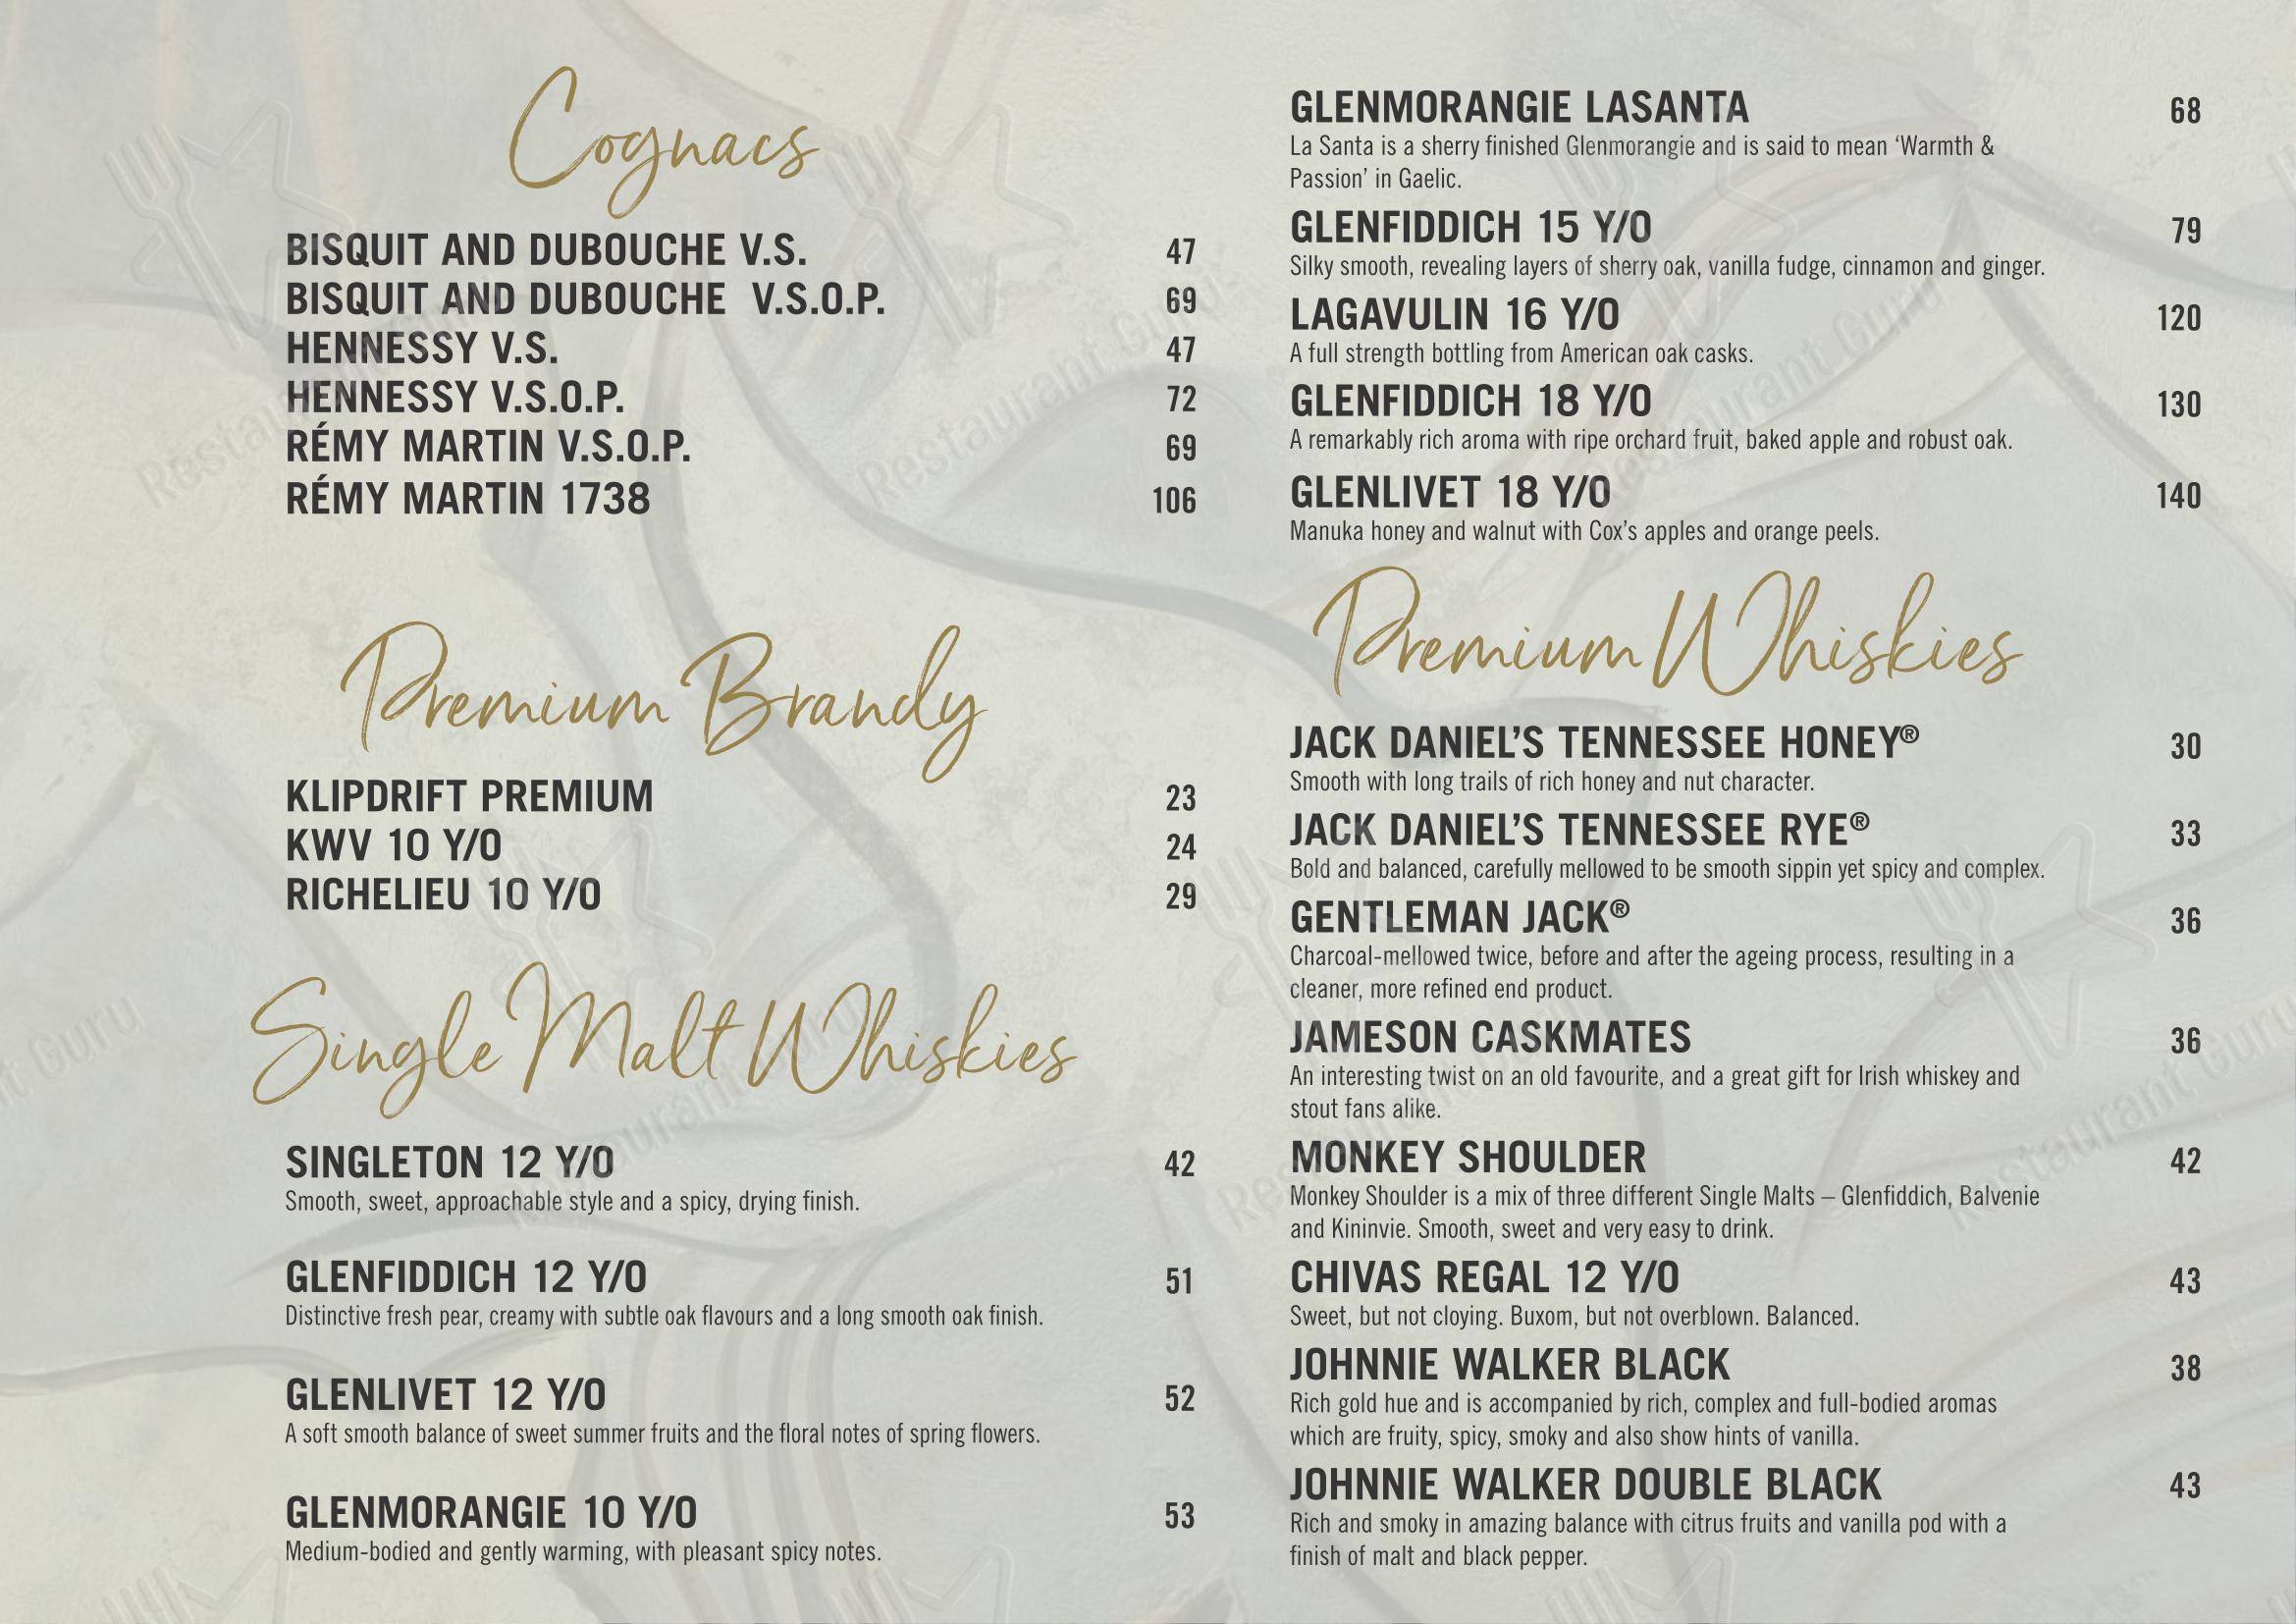 Cognacs
BISQUIT AND DUBOUCHE V.S. 47
BISQUIT AND DUBOUCHE V.S.O.P. 69
HENNESSY V.S. 47
HENNESSY V.S.O.P. 72
RÉMY MARTIN V.S.O.P. 69
RÉMY MARTIN 1738 106
Premium Brandy
KLIPDRIFT PREMIUM 23
KWV 10 Y/O 24
RICHELIEU 10 Y/O 29
Single Malt Whiskies
SINGLETON 12 Y/O 42
Smooth, sweet, approachable style and a spicy, drying finish.
GLENFIDDICH 12 Y/O 51
Distinctive fresh pear, creamy with subtle oak flavours and a long smooth oak finish.
GLENLIVET 12 Y/O 52
A soft smooth balance of sweet summer fruits and the floral notes of spring flowers.
GLENMORANGIE 10 Y/O 53
Medium-bodied and gently warming, with pleasant spicy notes.
GLENMORANGIE LASANTA 68
La Santa is a sherry finished Glenmorangie and is said to mean ‘Warmth &
Passion’ in Gaelic.
GLENFIDDICH 15 Y/O 79
Silky smooth, revealing layers of sherry oak, vanilla fudge, cinnamon and ginger.
LAGAVULIN 16 Y/O 120
A full strength bottling from American oak casks.
GLENFIDDICH 18 Y/O 130
A remarkably rich aroma with ripe orchard fruit, baked apple and robust oak.
GLENLIVET 18 Y/O 140
Manuka honey and walnut with Cox’s apples and orange peels.
Premium Whiskies
JACK DANIEL’S TENNESSEE HONEY® 30
Smooth with long trails of rich honey and nut character.
JACK DANIEL’S TENNESSEE RYE® 33
Bold and balanced, carefully mellowed to be smooth sippin yet spicy and complex.
GENTLEMAN JACK® 36
Charcoal-mellowed twice, before and after the ageing process, resulting in a
cleaner, more refined end product.
JAMESON CASKMATES 36
An interesting twist on an old favourite, and a great gift for Irish whiskey and
stout fans alike.
MONKEY SHOULDER 42
Monkey Shoulder is a mix of three different Single Malts – Glenfiddich, Balvenie
and Kininvie. Smooth, sweet and very easy to drink.
CHIVAS REGAL 12 Y/O 43
Sweet, but not cloying. Buxom, but not overblown. Balanced.
JOHNNIE WALKER BLACK 38
Rich gold hue and is accompanied by rich, complex and full-bodied aromas
which are fruity, spicy, smoky and also show hints of vanilla.
JOHNNIE WALKER DOUBLE BLACK 43
Rich and smoky in amazing balance with citrus fruits and vanilla pod with a
finish of malt and black pepper.
Restaurant Guru
Restaurant Guru
Restaurant Guru
Restaurant Guru
Restaurant Guru
Restaurant Guru